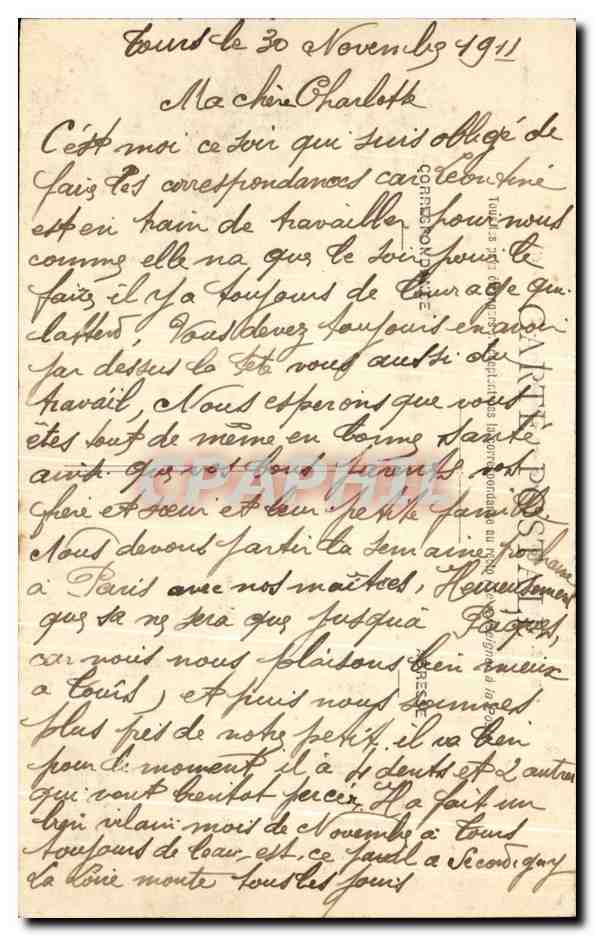 Tours le 30 Novembre 1911
Ma chère Charlotte
C'est moi ce soir qui suis obligé de
faire les correspondances car Léontine
est en train de travailler pour nous
comme elle na que le soir pour le
faire il y a toujours de l'ouvrage qui
l'attend, Vous devez toujours en avoir
par dessus la tete vous aussi du
travaïl, Nous esperons que vous
êtes tout de même en bonne santé
ainsi que vos bons parents vos
frère et sœur et leur petite famille
Nous devons partir la semaine prochaine
à Paris avec nos maîtres, Heureusement
que sa ne sera que jusquà Paques,
car nous nous plaisons bien mieux
a Tours, et puis nous sommes
plus près de notre petit, il va bien
pour le moment il à 4 dents et 2 autres
qui vont bientot percér, Il a fait un
bien vilain mois de Novembre à Tours
toujours de leau, est-ce pareil a Secondigny
La Loire monte tous les jours
CARTE POSTALE
CORRESPONDANCE
ADRESSE
CPAPHIL